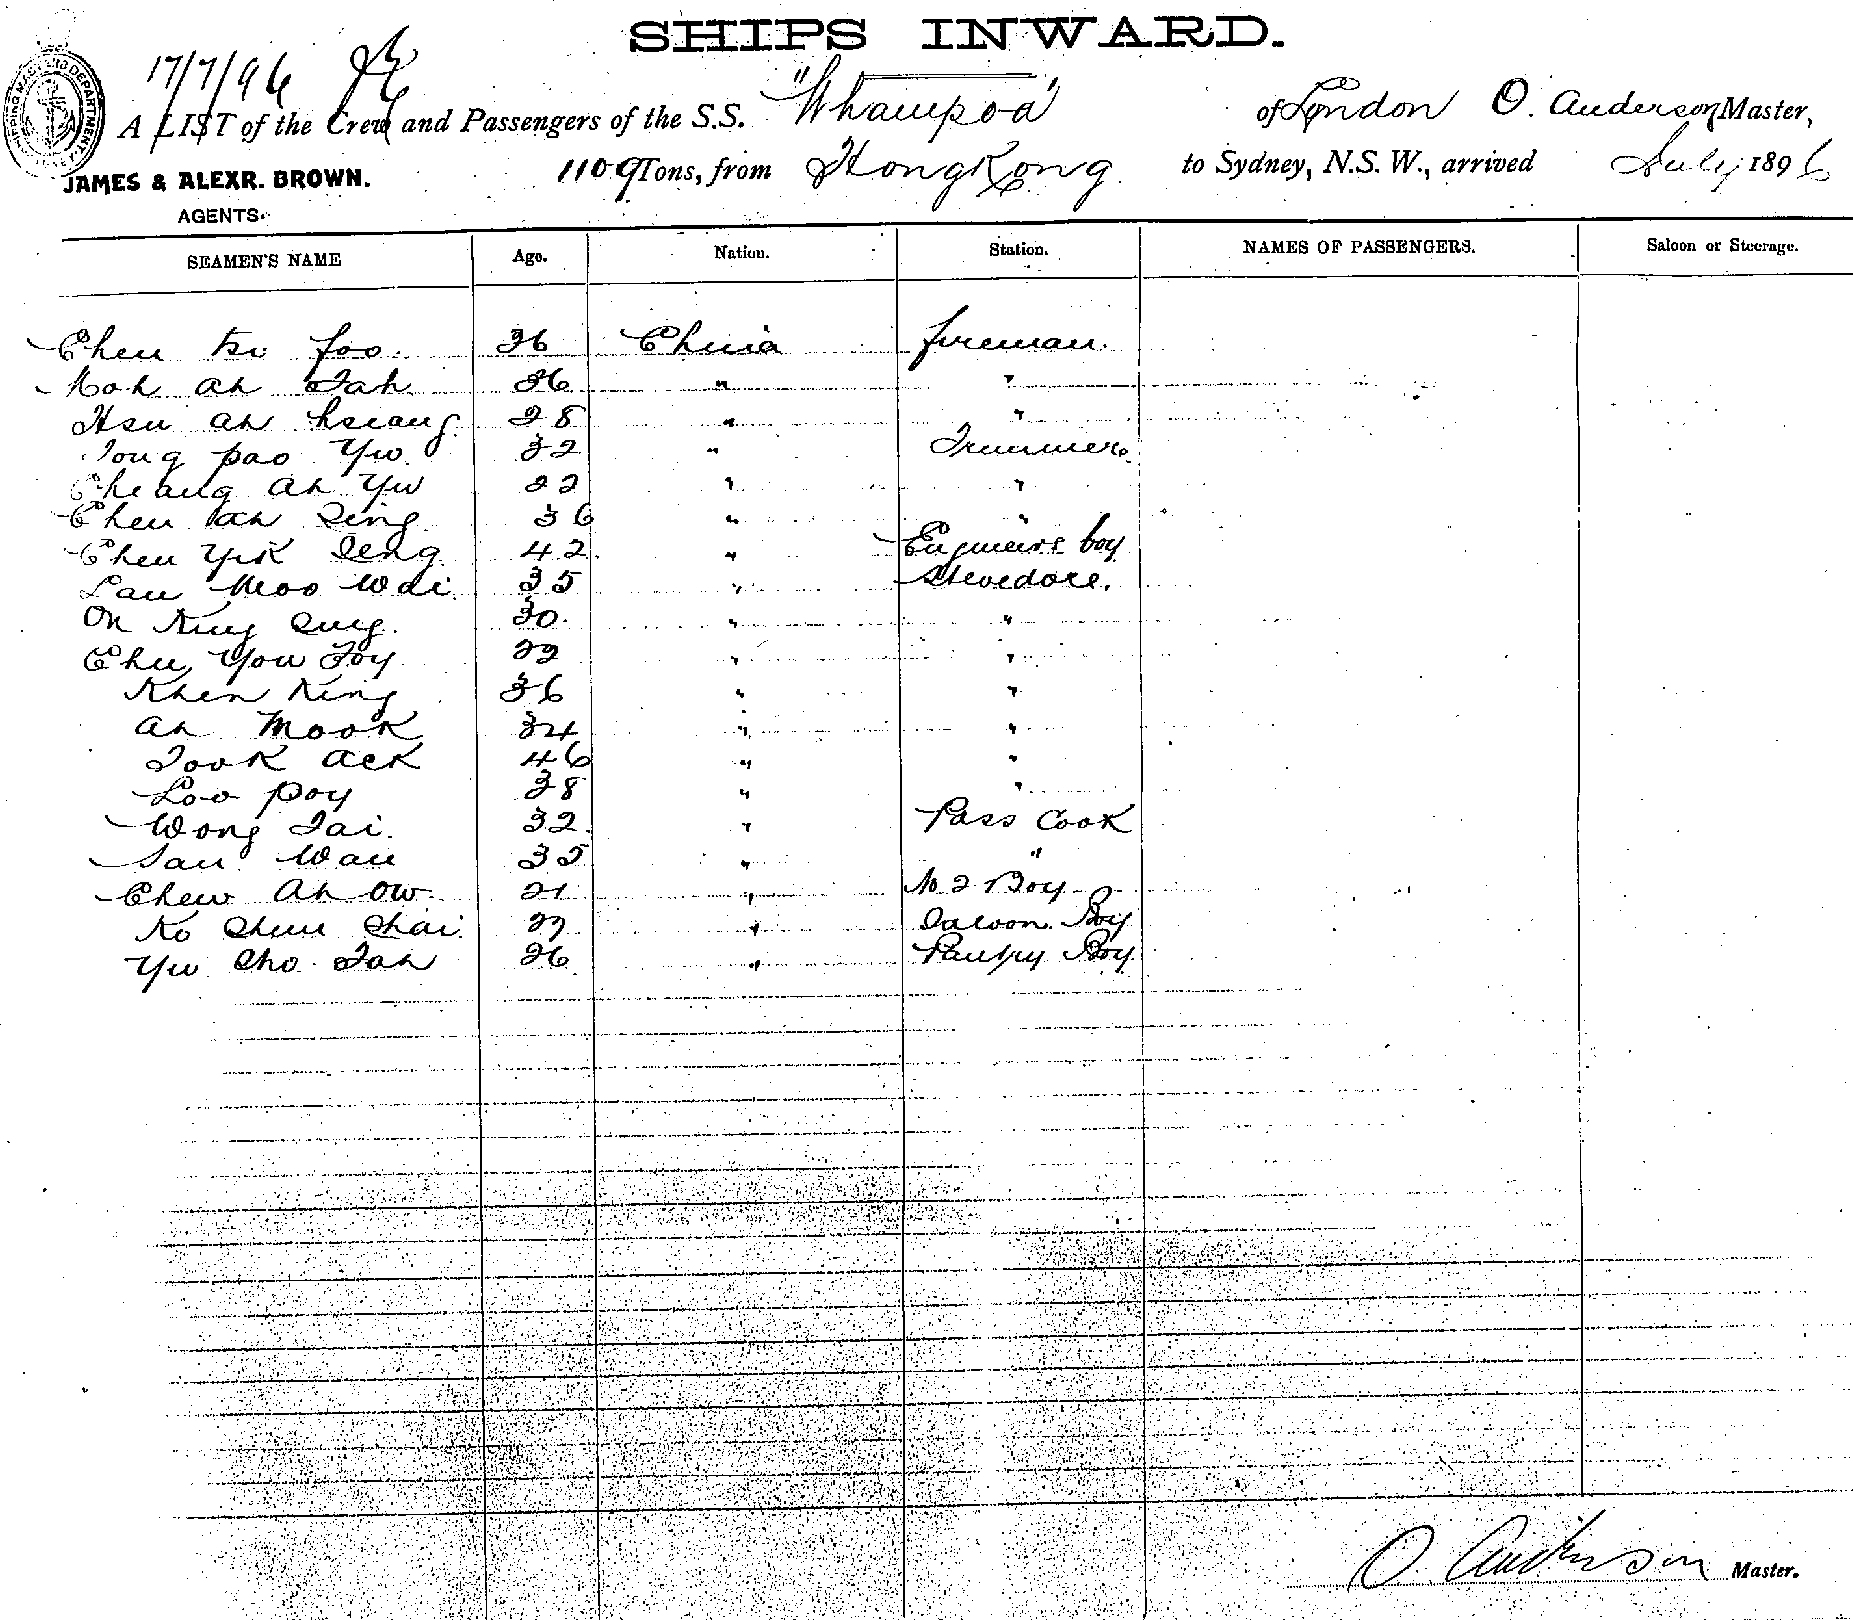 SHIPS INWARD.
17/7/96
A LIST of the Crew and Passengers of the S.S. "Whampoa" of London O. Anderson Master,
JAMES & ALEXR. BROWN. 1109 Tons, from HongKong to Sydney, N.S.W., arrived July 1896
AGENTS.
SEAMEN'S NAME Age. Nation. Station. NAMES OF PASSENGERS. Saloon or Steerage.
Chen foo. 36 China fireman.
ah Tah 26 " "
Hsu ah hsiang 28 " "
Tong pao Yu 32 " Trimmers
Cheang ah Yu 22 " "
Chen ah Sing 36 " "
Chen Yik Seng 42 " Engineers boy
Lau Moo Wai 35 " Stevedore.
On King Sung. 30. " "
Chu You Foy 22 " "
Khen King 36 " "
ah Mook 34 " "
Took Ack 46 " "
Loo Poy 38 " "
Wong Tai. 32 " Pass Cook
Sau Wau 35 " "
Chew Ah Ow. 21 " No 2 Boy
Ko Chun Chai 27 " Saloon Boy
Yu Cho Tah 26 " Pantry Boy
O. Anderson Master.